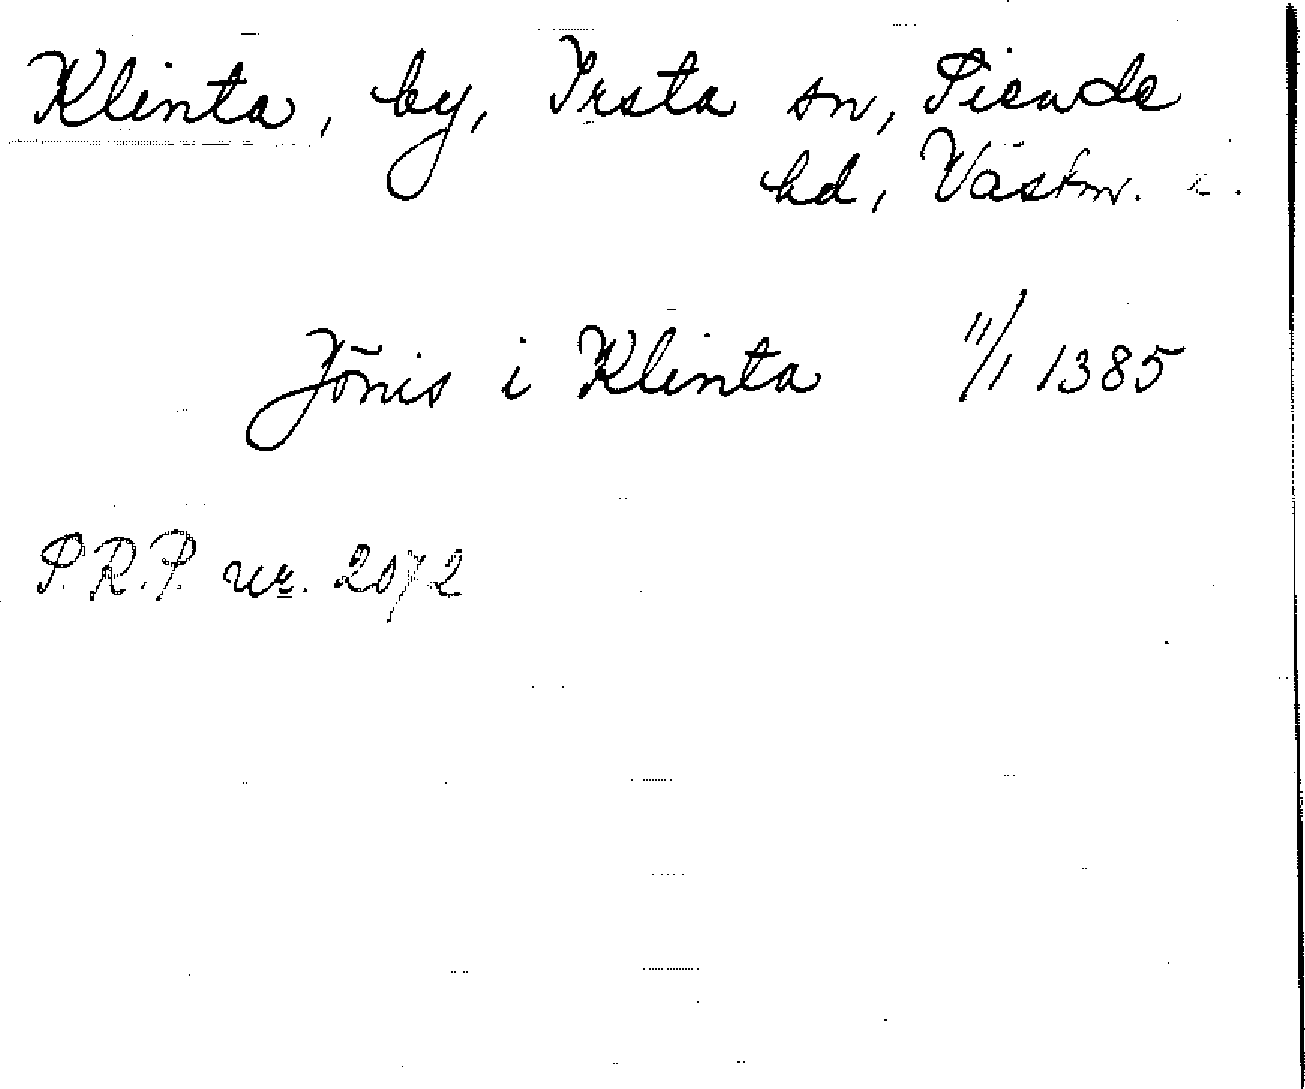 Klinta, by, Irsta sn, Siende
hd, Västm. l.
Jōnis i Klinta 11/1 1385
S.R.P. nr. 2072